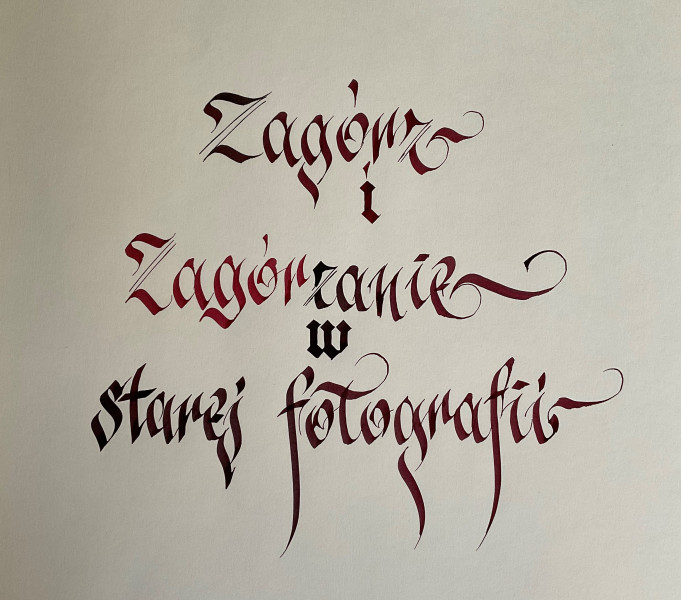 Zagórz
i
Zagórzanie
w
starej fotografii